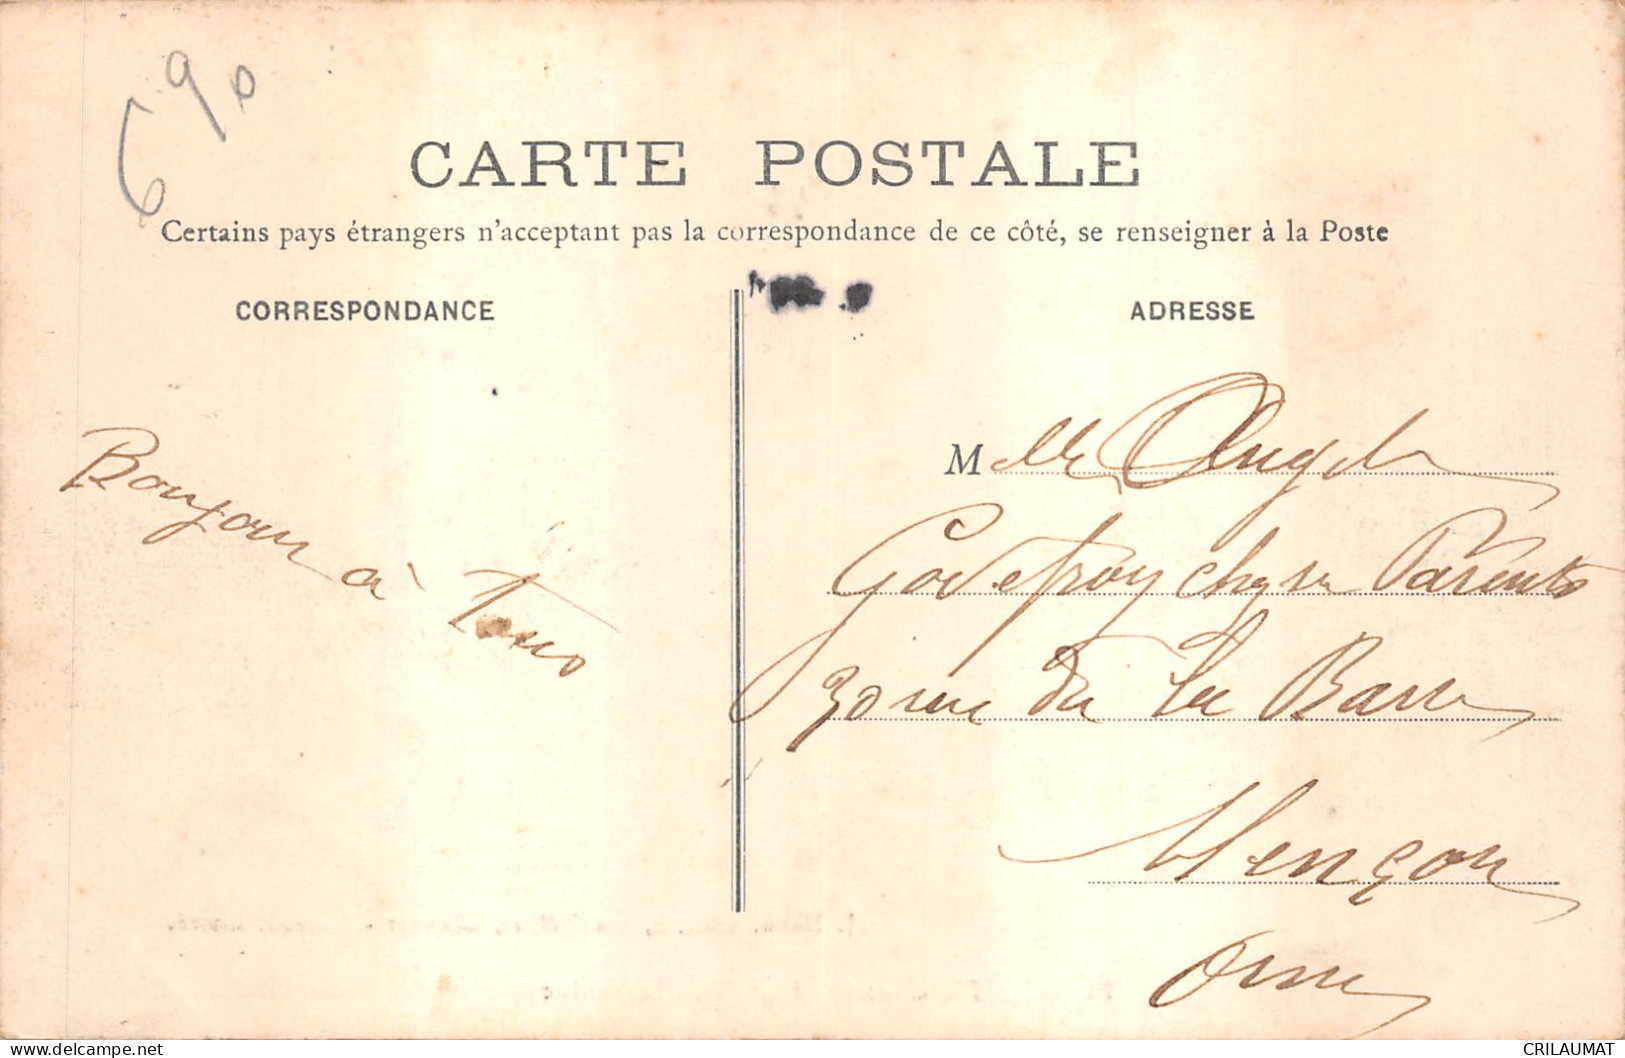 690
CARTE POSTALE
Certains pays étrangers n'acceptant pas la correspondance de ce côté, se renseigner à la Poste
CORRESPONDANCE
ADRESSE
Bonjour à Tous
Melle Angele
Godefroy chez ses Parents
30 rue du la Barre
Alençon
Orne
Delcampe.net
CRILAUMAT